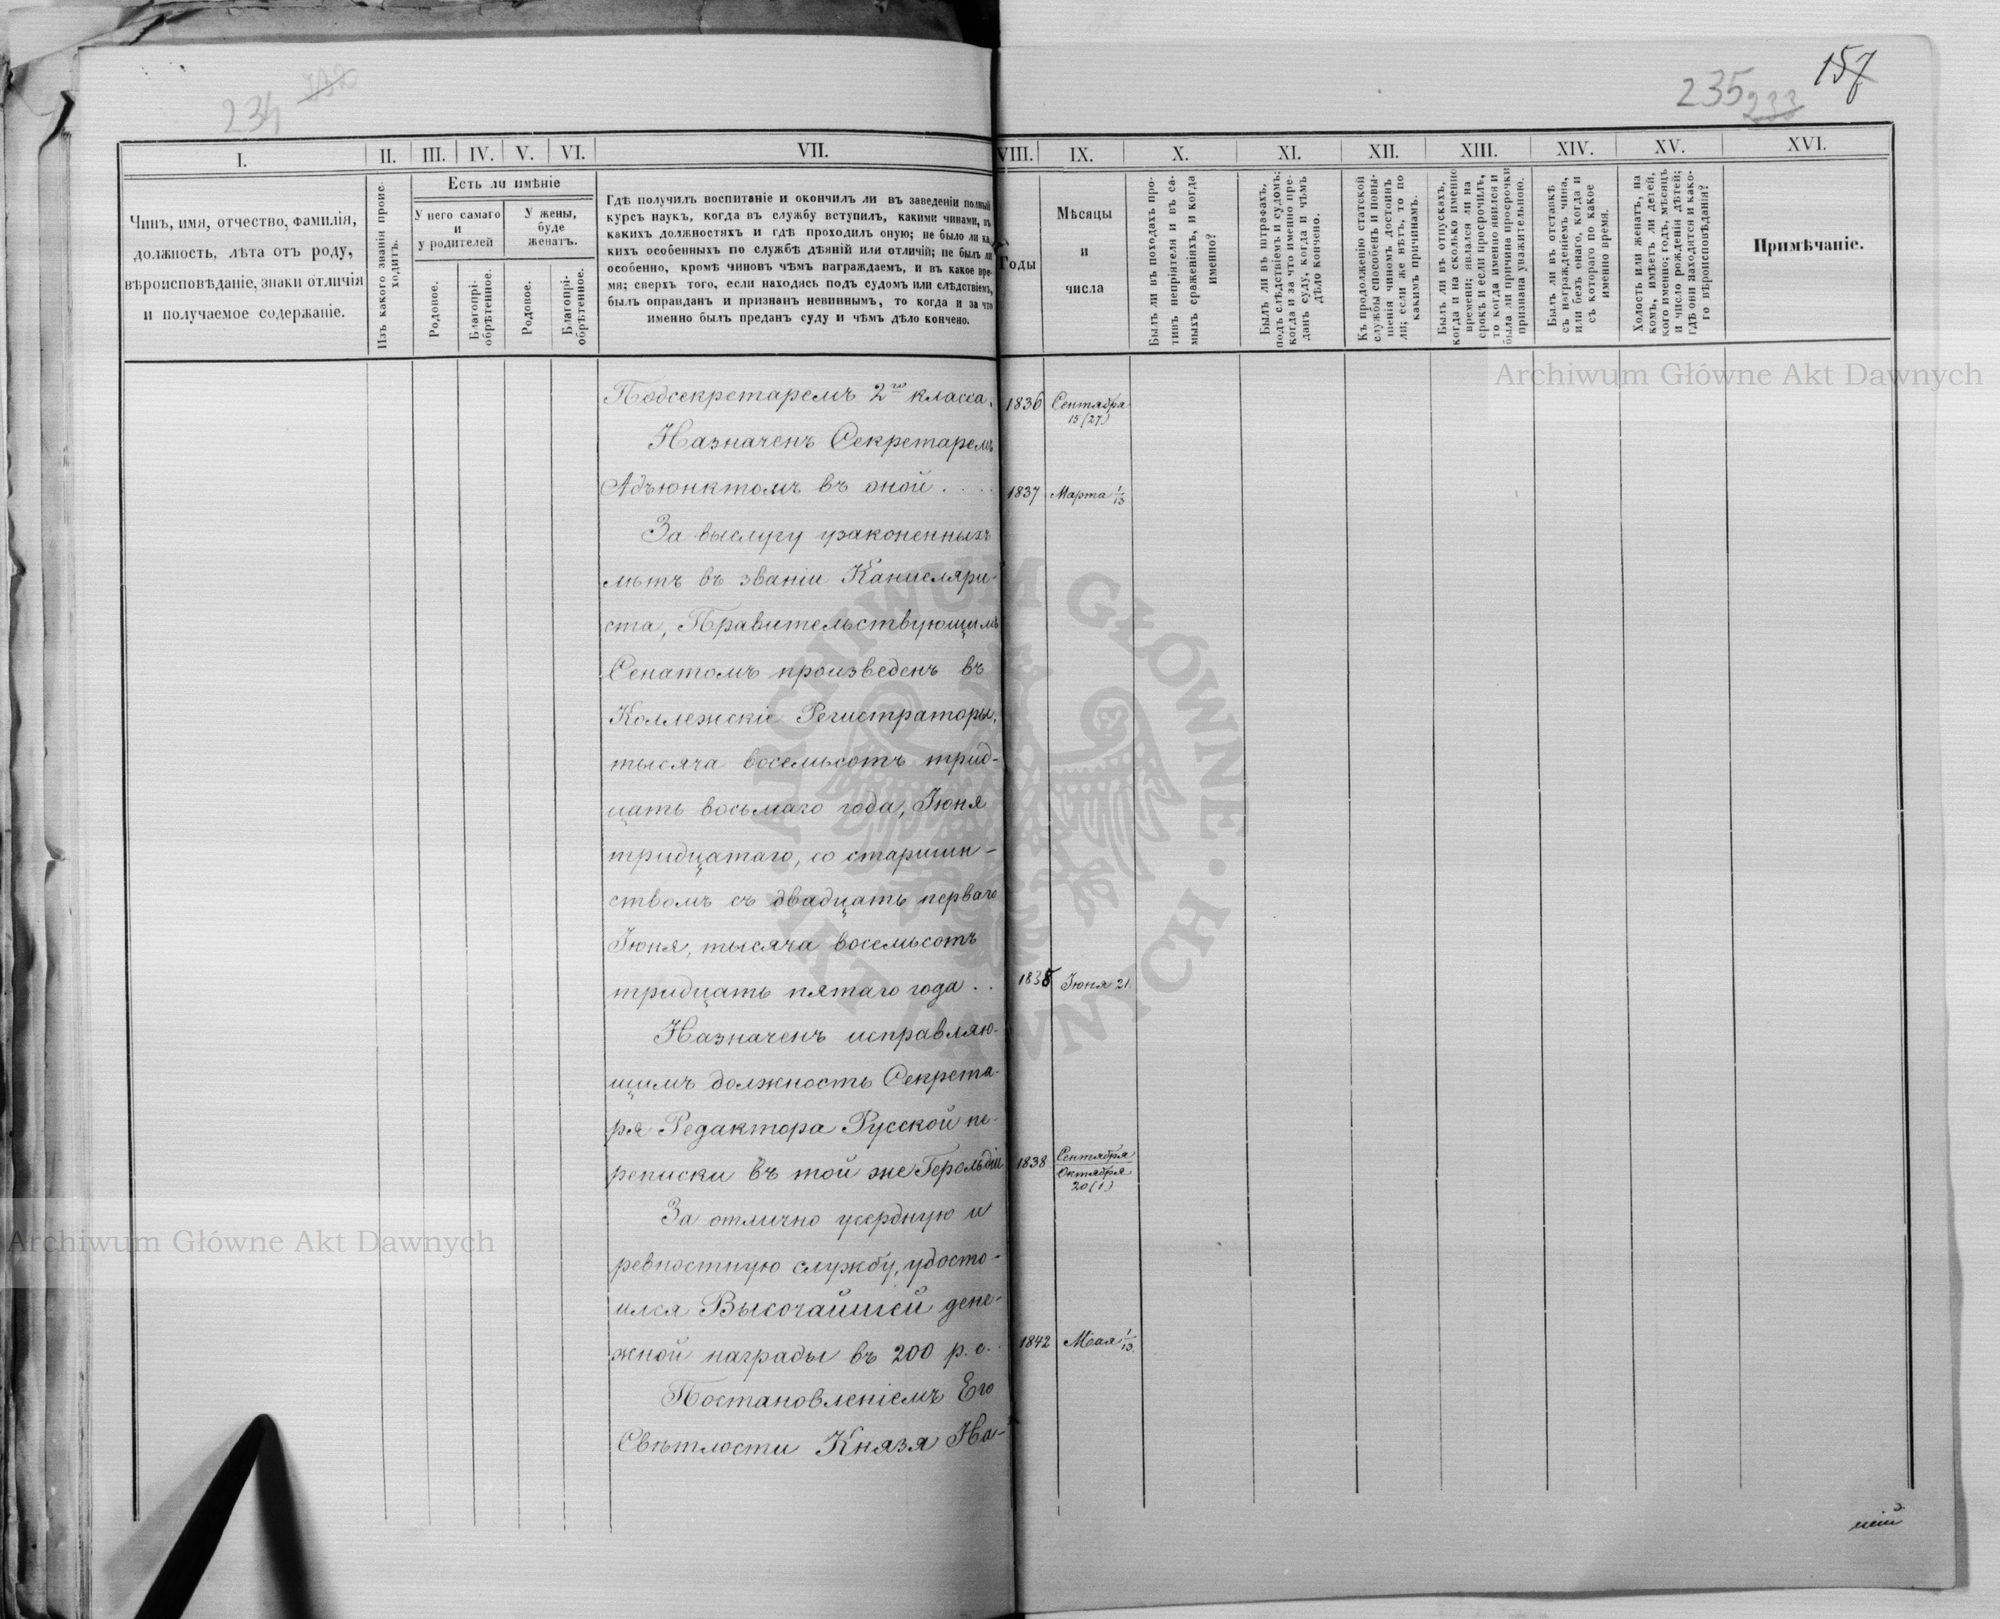 234
235
233
157
I.
II.
III.
IV.
V.
VI.
VII.
VIII.
IX.
X.
XI.
XII.
XIII.
XIV.
XV.
XVI.
Чинъ, имя, отчество, фамилія,
должность, лѣта отъ роду,
вѣроисповѣданіе, знаки отличія
и получаемое содержаніе.
Изъ какого званія проис-
ходитъ.
Есть ли имѣніе
У него самаго
и
у родителей
У жены,
буде
женатъ.
Родовое.
Благопрі-
обрѣтенное.
Родовое.
Благопрі-
обрѣтенное.
Гдѣ получилъ воспитаніе и окончилъ ли въ заведеніи полный
курсъ наукъ, когда въ службу вступилъ, какими чинами, въ
какихъ должностяхъ и гдѣ проходилъ оную; не было ли ка-
кихъ особенныхъ по службѣ дѣяній или отличій; не былъ ли
особенно, кромѣ чиновъ чѣмъ награждаемъ, и въ какое вре-
мя; сверхъ того, если находясь подъ судомъ или слѣдствіемъ,
былъ оправданъ и признанъ невиннымъ, то когда и за что
именно былъ преданъ суду и чѣмъ дѣло кончено.
Годы
Мѣсяцы
и
числа
Былъ ли въ походахъ про-
тивъ непріятеля и въ са-
мыхъ сраженіяхъ, и когда
именно?
Былъ ли въ штрафахъ,
подъ слѣдствіемъ и судомъ;
когда и за что именно пре-
данъ суду, когда и чѣмъ
дѣло кончено.
Къ продолженію статской
службы способенъ и повы-
шенія чиномъ достоинъ
ли; если же нѣтъ, то по
какимъ причинамъ.
Былъ ли въ отпускахъ,
когда и на сколько именно
времени; явился ли на
срокъ и если просрочилъ,
то когда именно явился и
была ли причина просрочки
признана уважительною.
Былъ ли въ отставкѣ
съ награжденіемъ чина,
или безъ онаго, когда и
съ котораго по какое
именно время.
Холостъ или женатъ, на
комъ, имѣетъ ли дѣтей,
кого именно; годъ, мѣсяцъ
и число рожденія дѣтей;
гдѣ они находятся и како-
го вѣроисповѣданія?
Примѣчаніе.
Подсекретаремъ 2го класса.
1836
Сентября
15 (27.)
Назначенъ Секретаремъ
Адъюнктомъ въ оной . . . .
1837
Марта 1/13
За выслугу узаконенныхъ
лѣтъ въ званіи Канцеляри-
ста, Правительствующимъ
Сенатомъ произведенъ въ
Коллежскіе Регистраторы,
тысяча восемьсотъ трид-
цать восьмаго года, Іюня
тридцатаго, со старшин-
ствомъ съ двадцать перваго
Іюня, тысяча восемьсотъ
тридцать пятаго года . .
Іюня 21.
Назначенъ исправляю-
щимъ должность Секрета-
ря Редактора Русской пе-
реписки въ той же Герольдіи
1838
Сентября
Октября
20 (1)
За отлично усердную и
ревностную службу, удосто-
ился Высочайшей дене-
жной награды въ 200 р. с. .
1842
Маія 1/13.
Постановленіемъ Его
Свѣтлости Князя На-
Archiwum Główne Akt Dawnych
Archiwum Główne Akt Dawnych
ARCHIWUM GŁÓWNE · AKT DAWNYCH ·